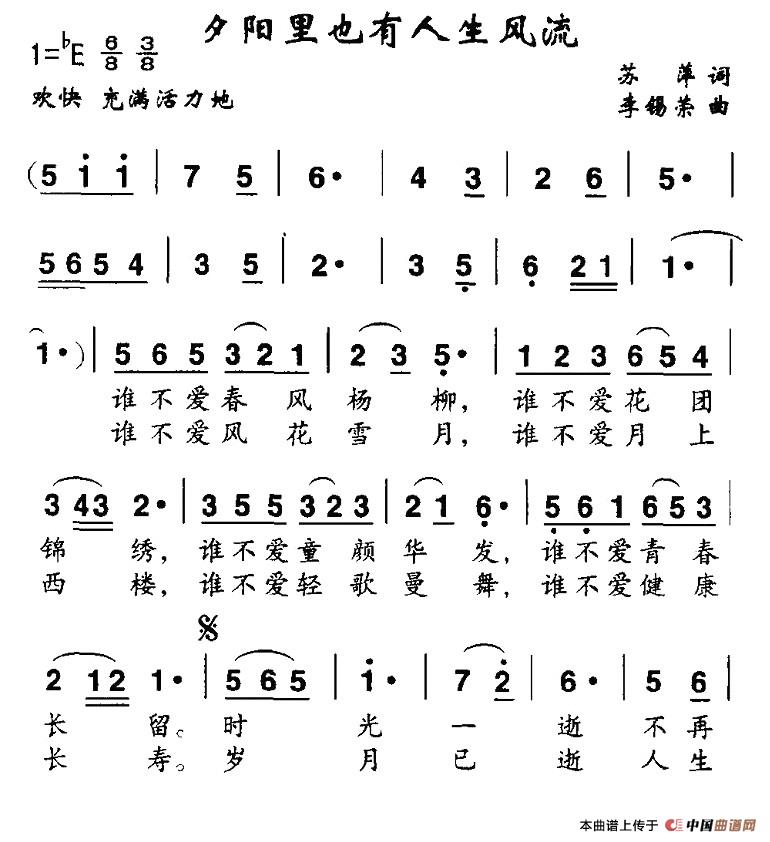 夕阳里也有人生风流
1=♭E 6/8 3/8
苏 萍 词
欢快 充满活力地
李锡荣 曲
(5 i i | 7 5 | 6· | 4 3 | 2 6 | 5· |
5 6 5 4 | 3 5 | 2· | 3 5 | 6 2 1 | 1· |
1·) | 5 6 5 3 2 1 | 2 3 5· | 1 2 3 6 5 4 |
谁不爱春风杨柳，谁不爱花团
谁不爱风花雪月，谁不爱月上
3 4 3 2· | 3 5 5 3 2 3 | 2 1 6· | 5 6 1 6 5 3 |
锦绣，谁不爱童颜华发，谁不爱青春
西楼，谁不爱轻歌曼舞，谁不爱健康
𝄋
2 1 2 1· | 5 6 5 | i· | 7 2 | 6· | 5 6 |
长留。时光一逝不再
长寿。岁月已逝人生
本曲谱上传于 中国曲谱网